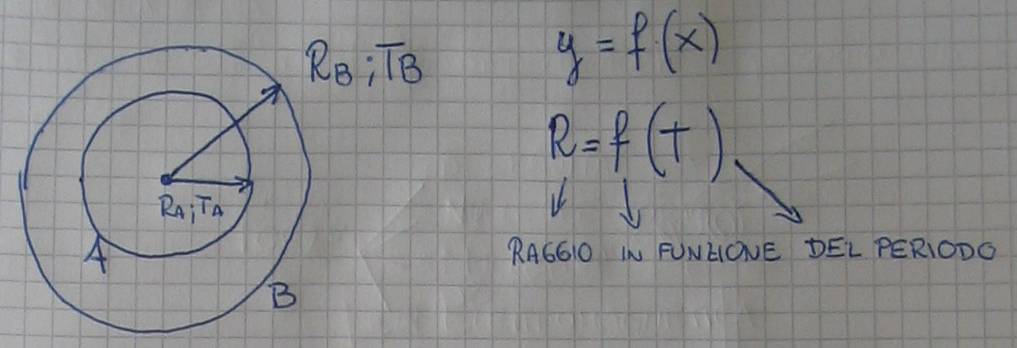 R_B ; T_B
R_A ; T_A
A
B
y = f(x)
R = f(T)
RAGGIO IN FUNZIONE DEL PERIODO